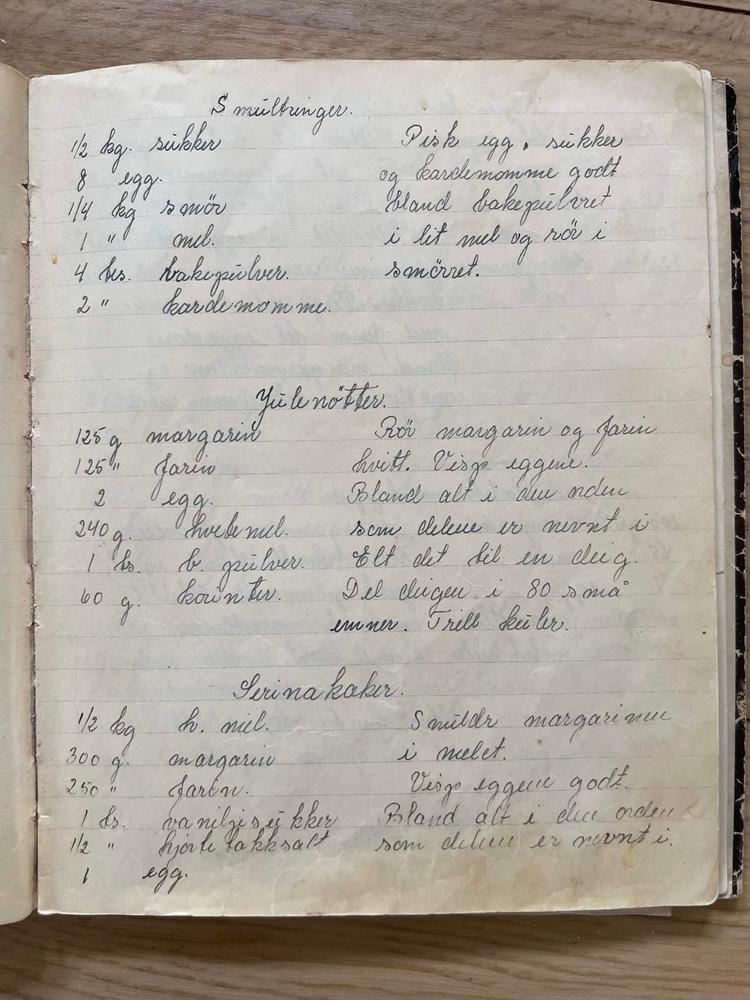 Smultringer.
1/2 kg. sukker
8 egg.
1/4 kg smör
1 " mel.
4 ts. bakepulver.
2 " kardemomme.
Pisk egg, sukker
og kardemomme godt
bland bakepulvret
i lit mel og rör i
smörret.
Yulenötter.
125 g margarin
125 " farin
2 egg.
240 g. hvetemel.
1 ts. b. pulver.
60 g. korinter.
Rör margarin og farin
hvitt. Visp eggene.
Bland alt i den orden
som delene er nevnt i
Elt det til en deig.
Del deigen i 80 små
emner. Trill kuler.
Serinakaker.
1/2 kg h. mel.
300 g. margarin
250 " farin.
1 ts. vaniljesukker
1/2 " hjortetakksalt
1 egg.
Smuldr margarinen
i melet.
Visp eggene godt.
Bland alt i den orden
som delene er nevnt i.